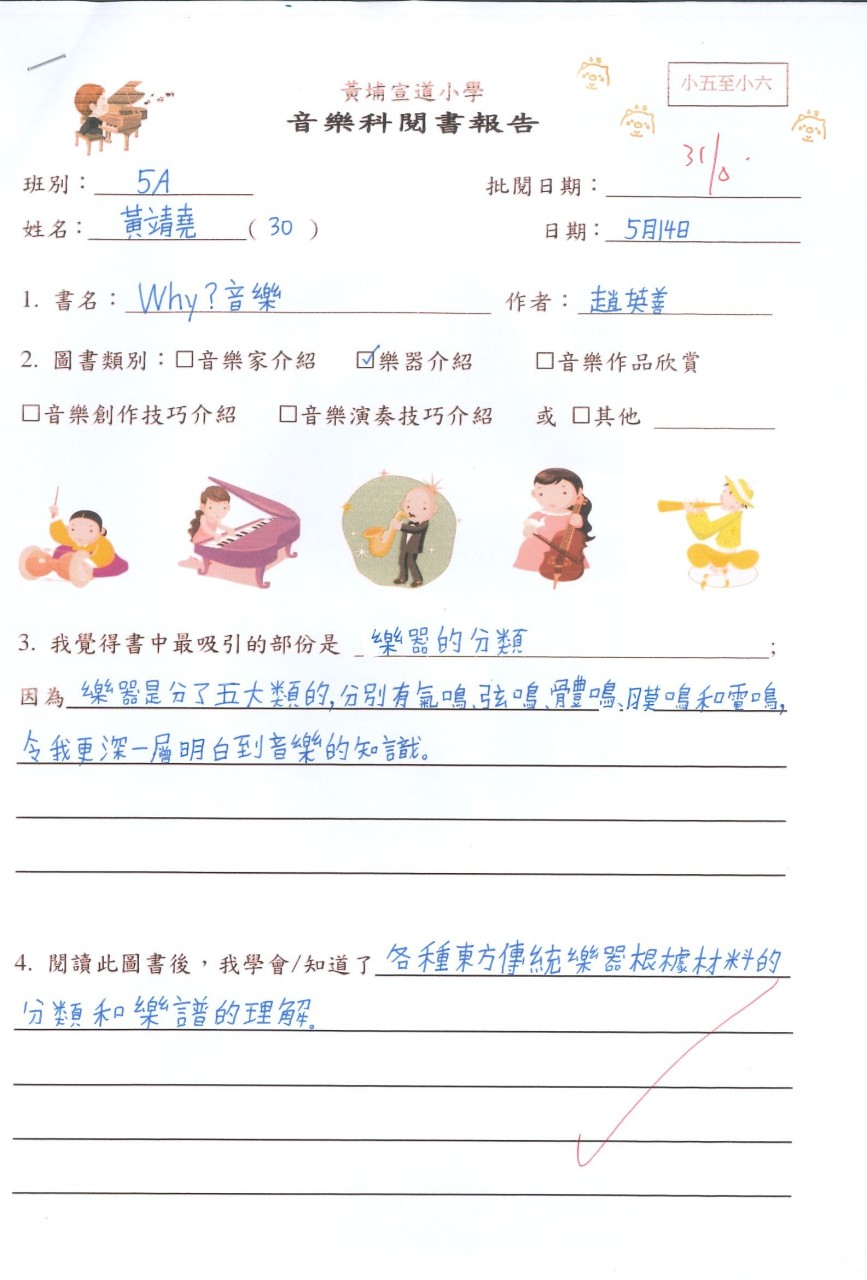 黃埔宣道小學
小五至小六
音樂科閱書報告
班別：5A 批閱日期：
姓名：黃靖堯( 30 ) 日期：5月14日
1. 書名：Why?音樂 作者：趙英善
2. 圖書類別：□音樂家介紹 ☑樂器介紹 □音樂作品欣賞
□音樂創作技巧介紹 □音樂演奏技巧介紹 或 □其他
3. 我覺得書中最吸引的部份是 樂器的分類;
因為樂器是分了五大類的,分別有氣鳴、弦鳴、體鳴、膜鳴和電鳴,
令我更深一層明白到音樂的知識。
4. 閱讀此圖書後，我學會/知道了各種東方傳統樂器根據材料的
分類和樂譜的理解。